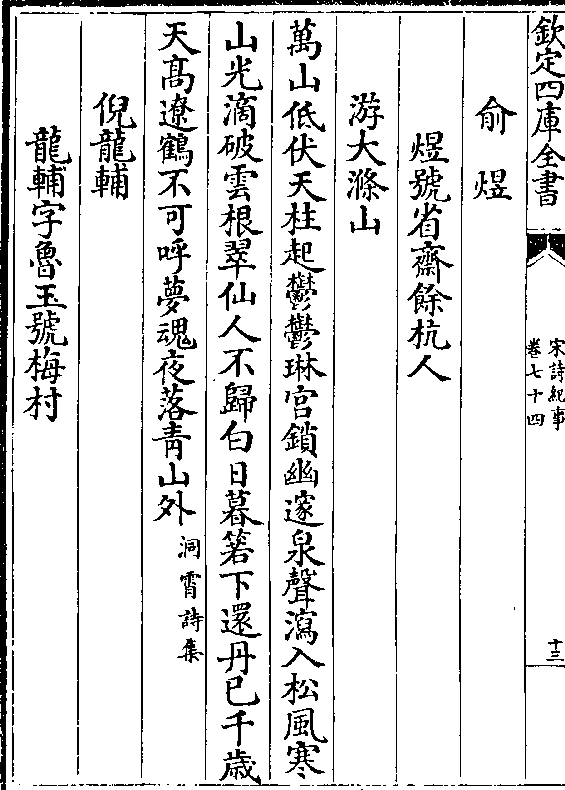 欽定四庫全書
宋詩紀事
卷七十四
十三
俞煜
煜號省齋餘杭人
游大滌山
萬山低伏天柱起鬱鬱琳宫鎖幽邃泉聲瀉入松風寒
山光滴破雲根翠仙人不歸白日暮箬下還丹已千歲
天髙遼鶴不可呼夢魂夜落青山外
洞霄詩集
倪龍輔
龍輔字魯玉號梅村